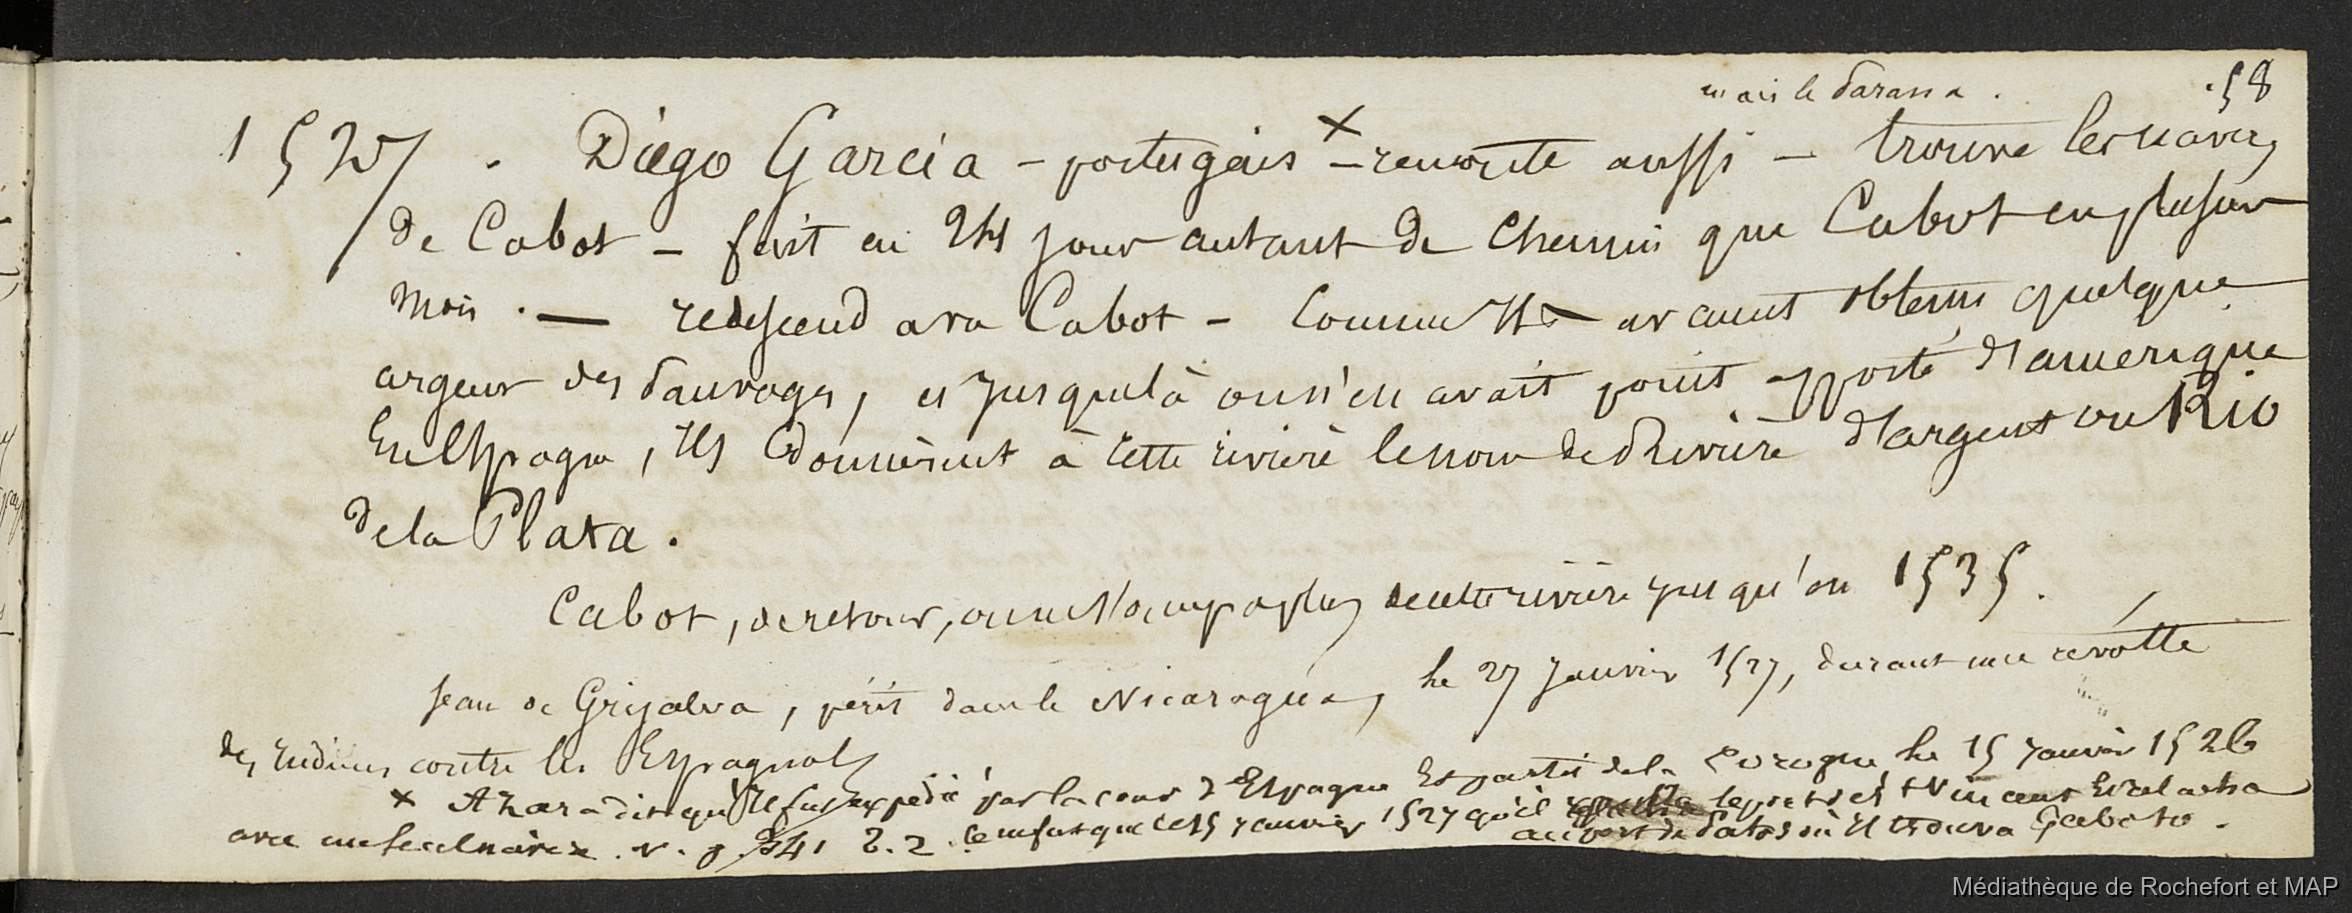 mais le Parana .
58
1527 . Diego Garcia – portugais × – remonte aussi – trouve les navires
de Cabot – fait en 24 jours autant de chemin que Cabot en plusieurs
mois . — redescend avec Cabot – Comme ils avaient obtenu quelque
argent des Sauvages, et jusque là on n'en avait point apporté d'amerique
En Espagne, ils donnèrent à cette rivière le nom de Rivière d'argent ou Rio
de la Plata .
Cabot, de retour, on ne s'occupa plus de cette rivière jusqu'en 1535 .
Jean de Grijalva, périt dans le Nicaragua, le 27 Janvier 1527, durant une révolte
des Indiens contre les Espagnols
× Azara dit qu'il fut expédié par la cour d'Espagne Et partit de la Corogne le 15 Janvier 1526
avec un seul navire . v. p. 341 T. 2 . Ce ne fut que le 15 Janvier 1527 qu'il le port de St Vincent Et relacha
au port de Patos où il trouva Gaboto .
Médiathèque de Rochefort et MAP